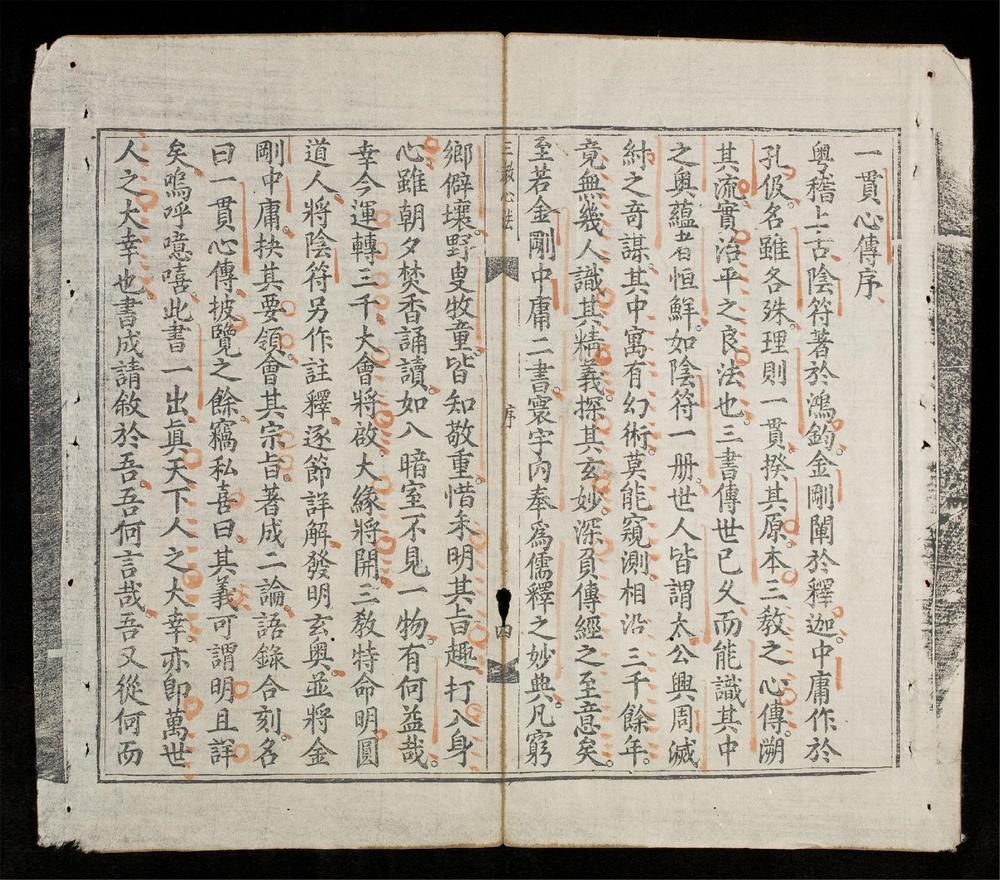 一貫心傳序
粵稽上古陰符著於鴻鈞金剛闡於釋迦。中庸作於
孔伋。名雖各殊。理則一貫。揆其原本。三教之心傳。溯
其流。實治平之良法也。三書傳世已久。而能識其中
之奧蘊者恒鮮。如陰符一册。世人皆謂太公興周滅
紂之奇謀。其中寓有幻術。莫能窺測。相沿三千餘年。
竟無幾人識其精義。探其玄妙。深負傳經之至意矣。
至若金剛中庸二書。寰宇內奉為儒釋之妙典。凡窮
三教心法
序
四
鄉僻壤。野叟牧童。皆知敬重。惜未明其旨趣。打入身
心。雖朝夕焚香誦讀。如入暗室不見一物。有何益哉。
幸今運轉三千大會將啟。大緣將開。三教特命明圓
道人。將陰符另作註釋。逐節詳解。發明玄奧。並將金
剛中庸。抉其要領。會其宗旨。著成二論。語錄合刻。名
曰一貫心傳。披覽之餘。竊私喜曰。其義可謂明且詳
矣。嗚呼噫嘻。此書一出。眞天下人之大幸。亦卽萬世
人之大幸也。書成請敘於吾。吾何言哉。吾又從何而